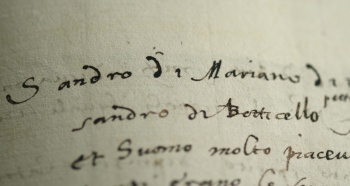 Sandro di Mariano di
sandro di Botticello
et Suomo molto piaceu